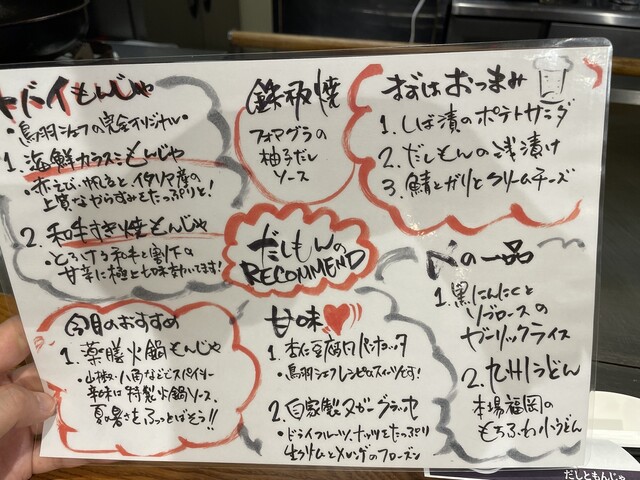 ヤバイもんじゃ
・鳥羽シェフの完全オリジナル・
1. 海鮮カラスミもんじゃ
・赤えび・帆立と、イタリア産の
上質なからすみをたっぷりと!
2. 和牛すき焼もんじゃ
・とろける和牛と割下の
甘辛に極と七味をかけてます!
鉄板焼
フォアグラの
柚子だし
ソース
まずはおつまみ
1. しば漬のポテトサラダ
2. だしもんの浅漬け
3. 鯖とガリとクリームチーズ
だしもんの
RECOMMEND
今月のおすすめ
1. 薬膳火鍋もんじゃ
・山椒・八角などとスパイシー
辛味に特製火鍋ソース
夏の暑さもふっとばそう!!
甘味
1. 杏仁豆腐風パンナコッタ
・鳥羽シェフレシピのスイーツです!
2. 自家製ヌガーグラッセ
・ドライフルーツ、ナッツをたっぷり
生クリームとメレンゲのフローズン
〆の一品
1. 黒にんにくと
リブロースの
ガーリックライス
2. 九州うどん
本場福岡の
もちふわうどん
だしともんじゃ